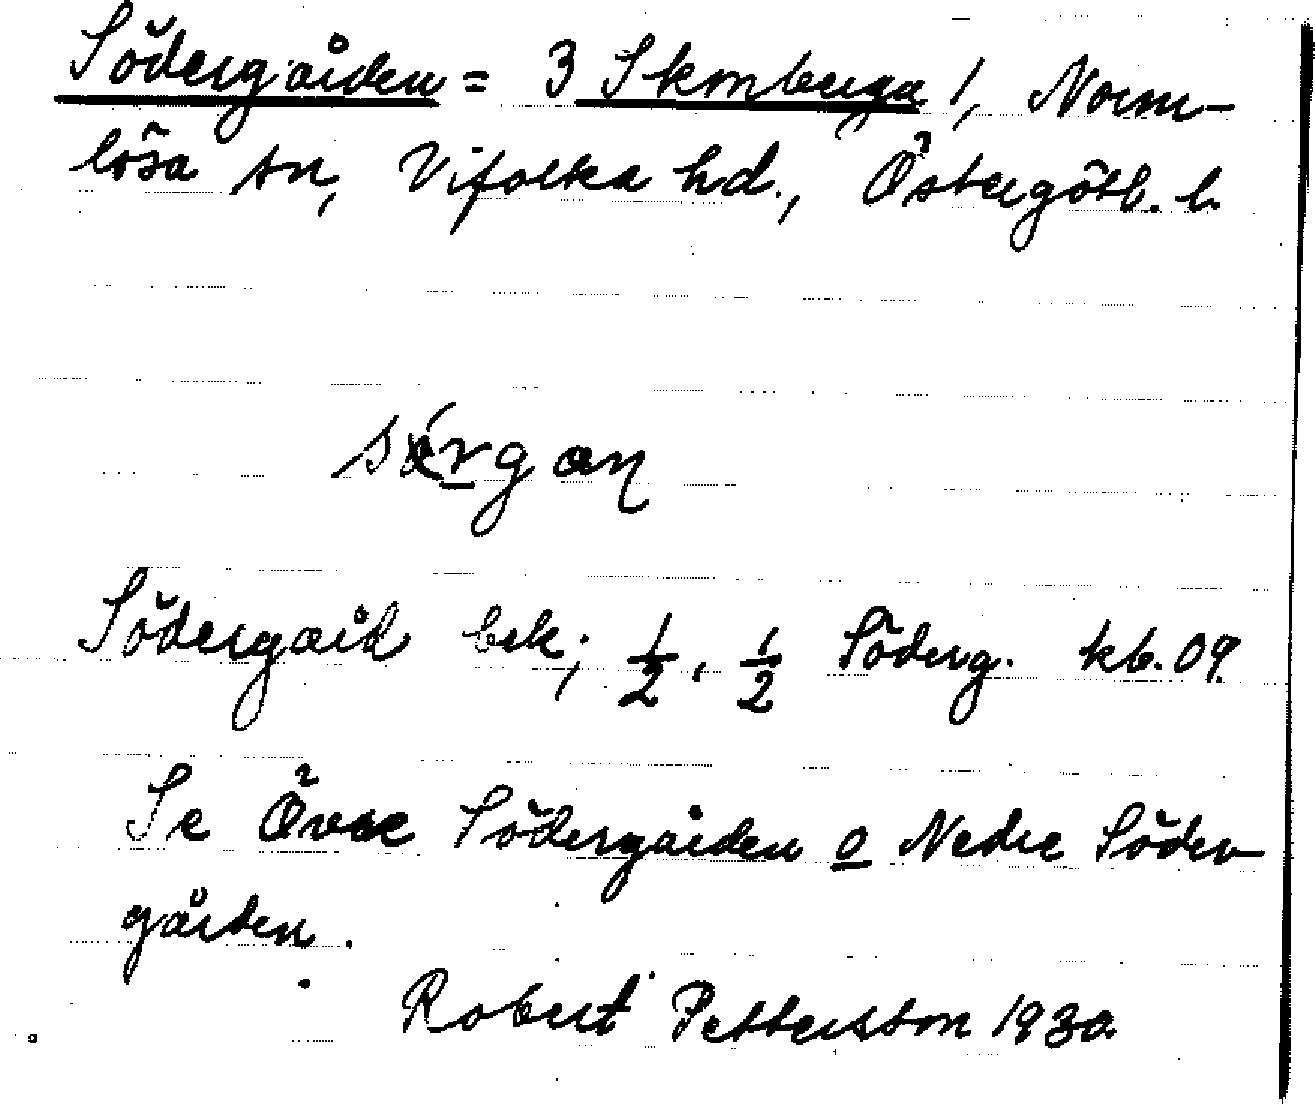 Södergården = 3 Skmberga!, Norm-
lösa sn, Vifolka hd., Östergötl. l.
Södergård bek; 1/2, 1/2 Söderg. kb. 09.
Se Övre Södergården o Nedre Söder-
gården.
Robert Pettersson 1930.